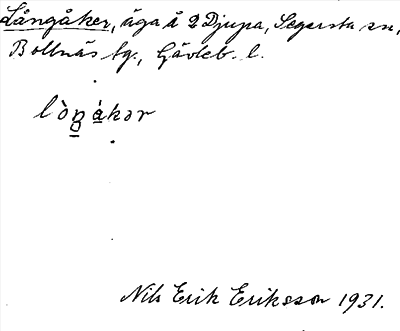 Långåker, äga å 2 Djupa, Segersta sn,
Bollnäs tg., Gävleb. l.
lòŋ̲ákər
Nils Erik Eriksson 1931.